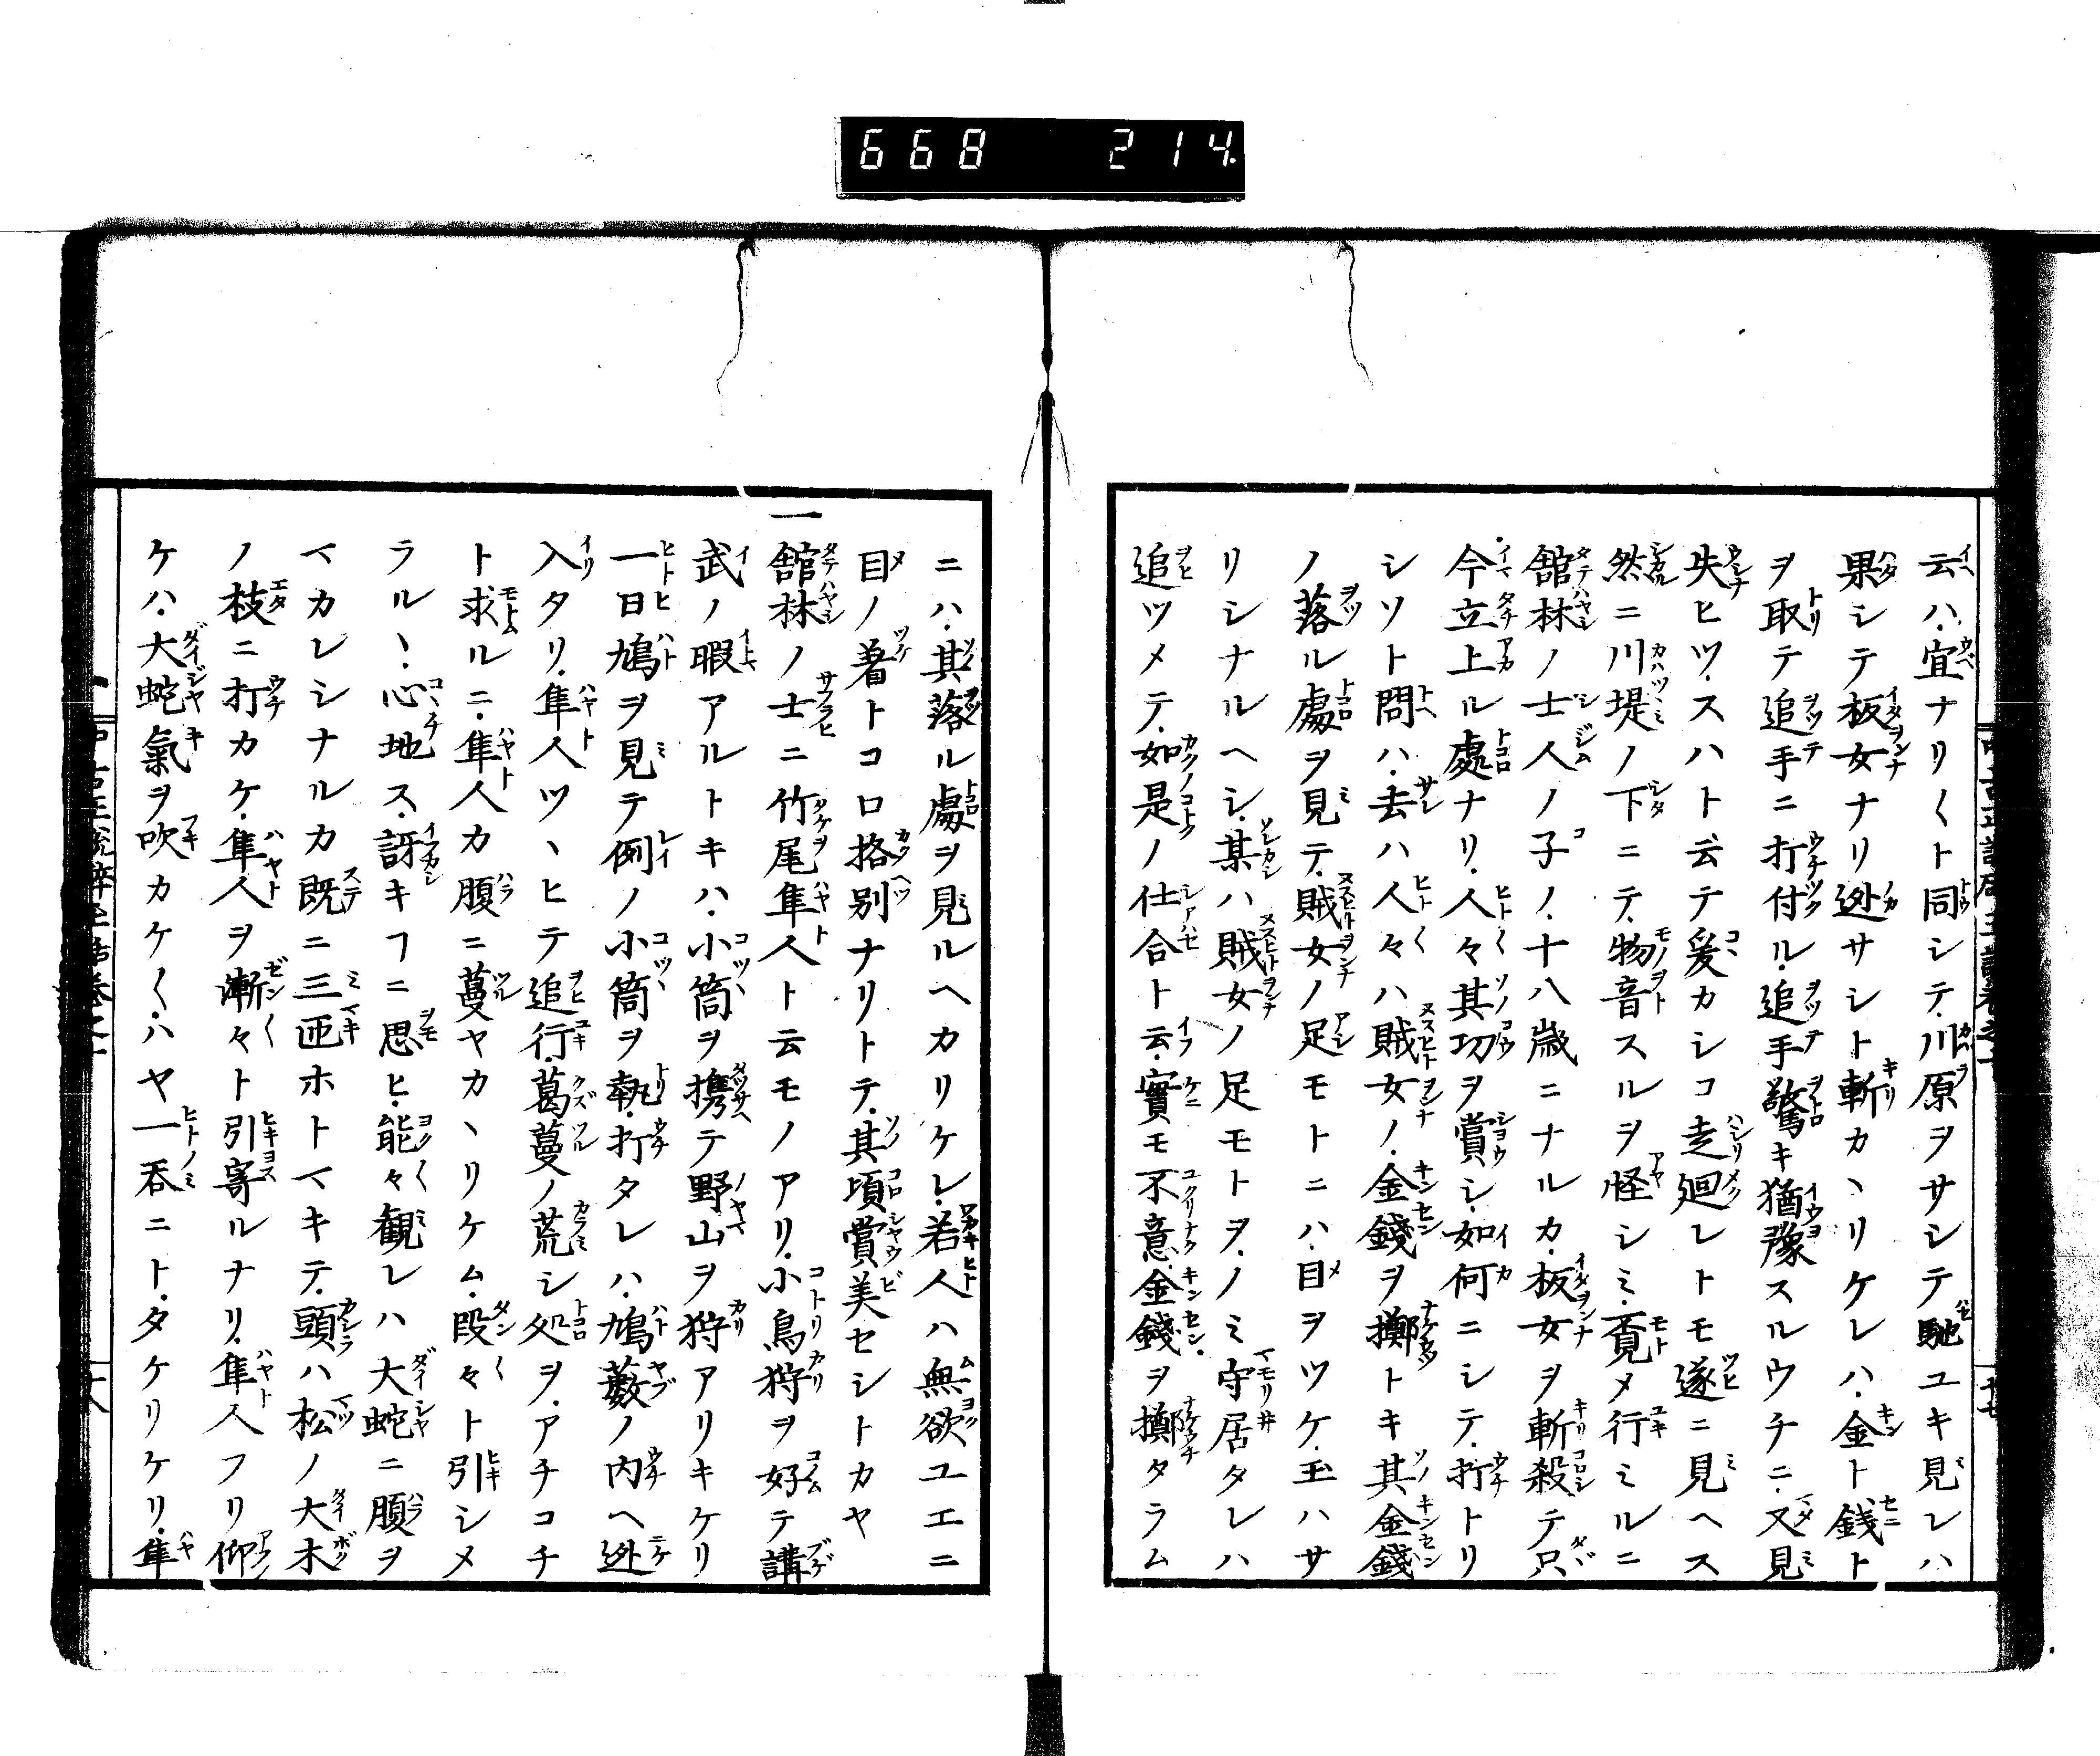 668 214.
云ハ宜ナリ〱ト同シテ川原ヲサシテ馳ユキ見レハ
果シテ板女ナリ迯サシト斬カヽリケレハ金ト銭ト
ヲ取テ追手ニ打付ル追手驚キ猶豫スルウチニ又見
失ヒツスハト云テ爰カシコ走廻レトモ遂ニ見ヘス
然ニ川堤ノ下ニテ物音スルヲ怪シミ覔メ行ミルニ
舘林ノ士人ノ子ノ十八歳ニナルカ板女ヲ斬殺テ只
今立上ル處ナリ人々其功ヲ賞シ如何ニシテ打トリ
シソト問ハ去ハ人々ハ賊女ノ金錢ヲ擲トキ其金錢
ノ落ル處ヲ見テ賊女ノ足モトニハ目ヲツケ玉ハサ
リシナルヘシ某ハ賊女ノ足モトヲノミ守居タレハ
追ツメテ如是ノ仕合ト云實モ不意金錢ヲ擲タラム
ニハ其落ル處ヲ見ルヘカリケレ若人ハ無欲ユエニ
目ノ着トコロ格別ナリトテ其項賞美セシトカヤ
一舘林ノ士ニ竹尾隼人ト云モノアリ小鳥狩ヲ好テ講
武ノ暇アルトキハ小筒ヲ携テ野山ヲ狩アリキケリ
一日鳩ヲ見テ例ノ小筒ヲ執打タレハ鳩藪ノ内ヘ迯
入タリ隼人ツヽヒテ追行葛蔓ノ荒シ処ヲアチコチ
ト求ルニ隼人カ腹ニ蔓ヤカヽリケム段々ト引シメ
ラルヽ心地ス訝キヿニ思ヒ能々観レハ大蛇ニ腹ヲ
マカレシナルカ既ニ三匝ホトマキテ頭ハ松ノ大木
ノ枝ニ打カケ隼人ヲ漸々ト引寄ルナリ隼人フリ仰
ケハ大蛇氣ヲ吹カケ〱ハヤ一呑ニトタケリケリ隼